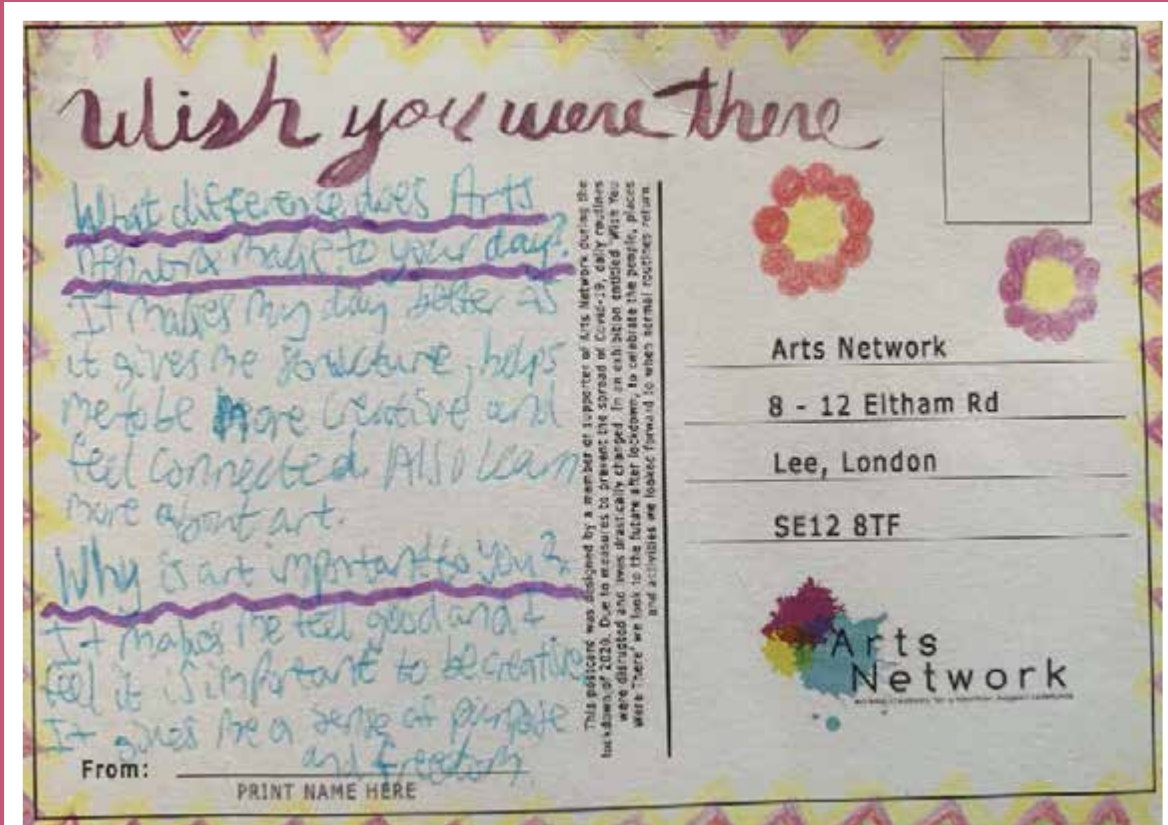 Wish you were there
What difference does Arts
Network make to your day?
It makes my day better as
it gives me structure, helps
me to be more creative and
feel connected. Also learn
more about art.
Why is art important to you?
It makes me feel good and I
feel it is important to be creative
It gives me a sense of purpose
and freedom.
From:
PRINT NAME HERE
This postcard was designed by a member or supporter of Arts Network during the
lockdown of 2020. Due to measures to prevent the spread of Covid-19, daily routines
were disrupted and lives drastically changed. In an exhibition entitled 'Wish You
Were There' we look to the future after lockdown, to celebrate the people, places
and activities we looked forward to when normal routines return.
Arts Network
8 - 12 Eltham Rd
Lee, London
SE12 8TF
Arts
Network